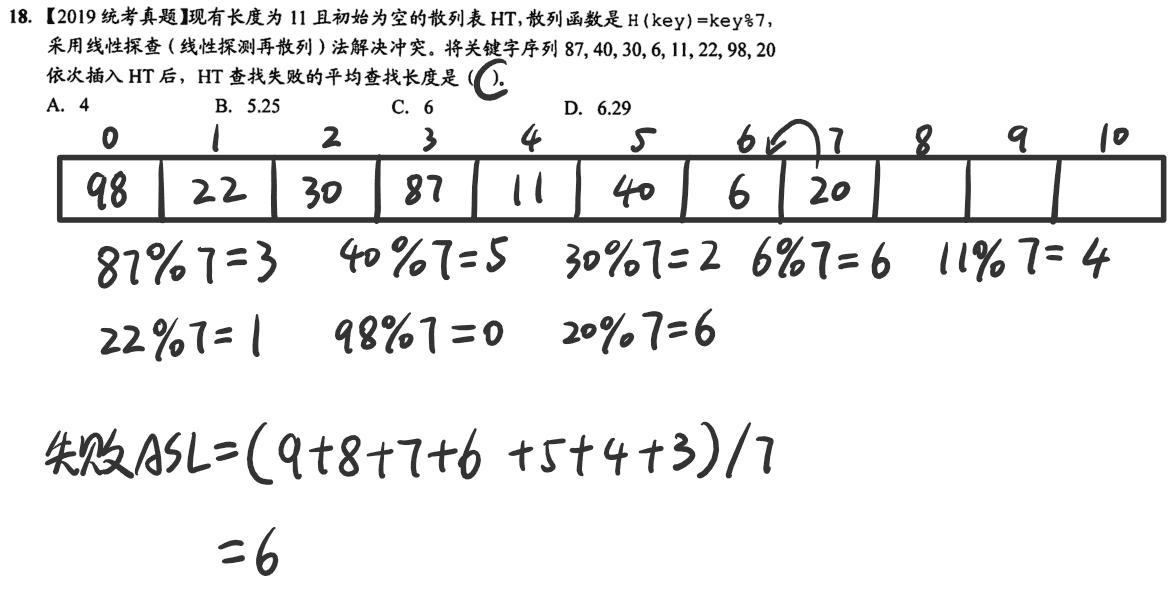 18.【2019统考真题】现有长度为 11 且初始为空的散列表 HT,散列函数是 H(key)=key%7,
采用线性探查（线性探测再散列）法解决冲突。将关键字序列 87, 40, 30, 6, 11, 22, 98, 20
依次插入 HT 后，HT 查找失败的平均查找长度是（C）。
A. 4 B. 5.25 C. 6 D. 6.29
0 1 2 3 4 5 6 7 8 9 10
98 22 30 87 11 40 6 20
87%7=3 40%7=5 30%7=2 6%7=6 11%7=4
22%7=1 98%7=0 20%7=6
失败ASL=(9+8+7+6+5+4+3)/7
=6